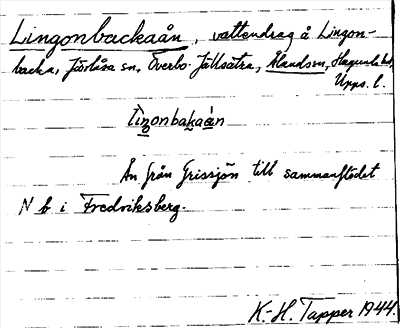 Lingonbackaån, vattendrag å Lingon-
backa, Järlåsa sn, Överbo. Jällsätra, Ålands sn, Hagunda hd,
Upps. l.
Ån från Grissjön till sammanflödet
N b i Fredriksberg.
K.-H. Tapper 1944.